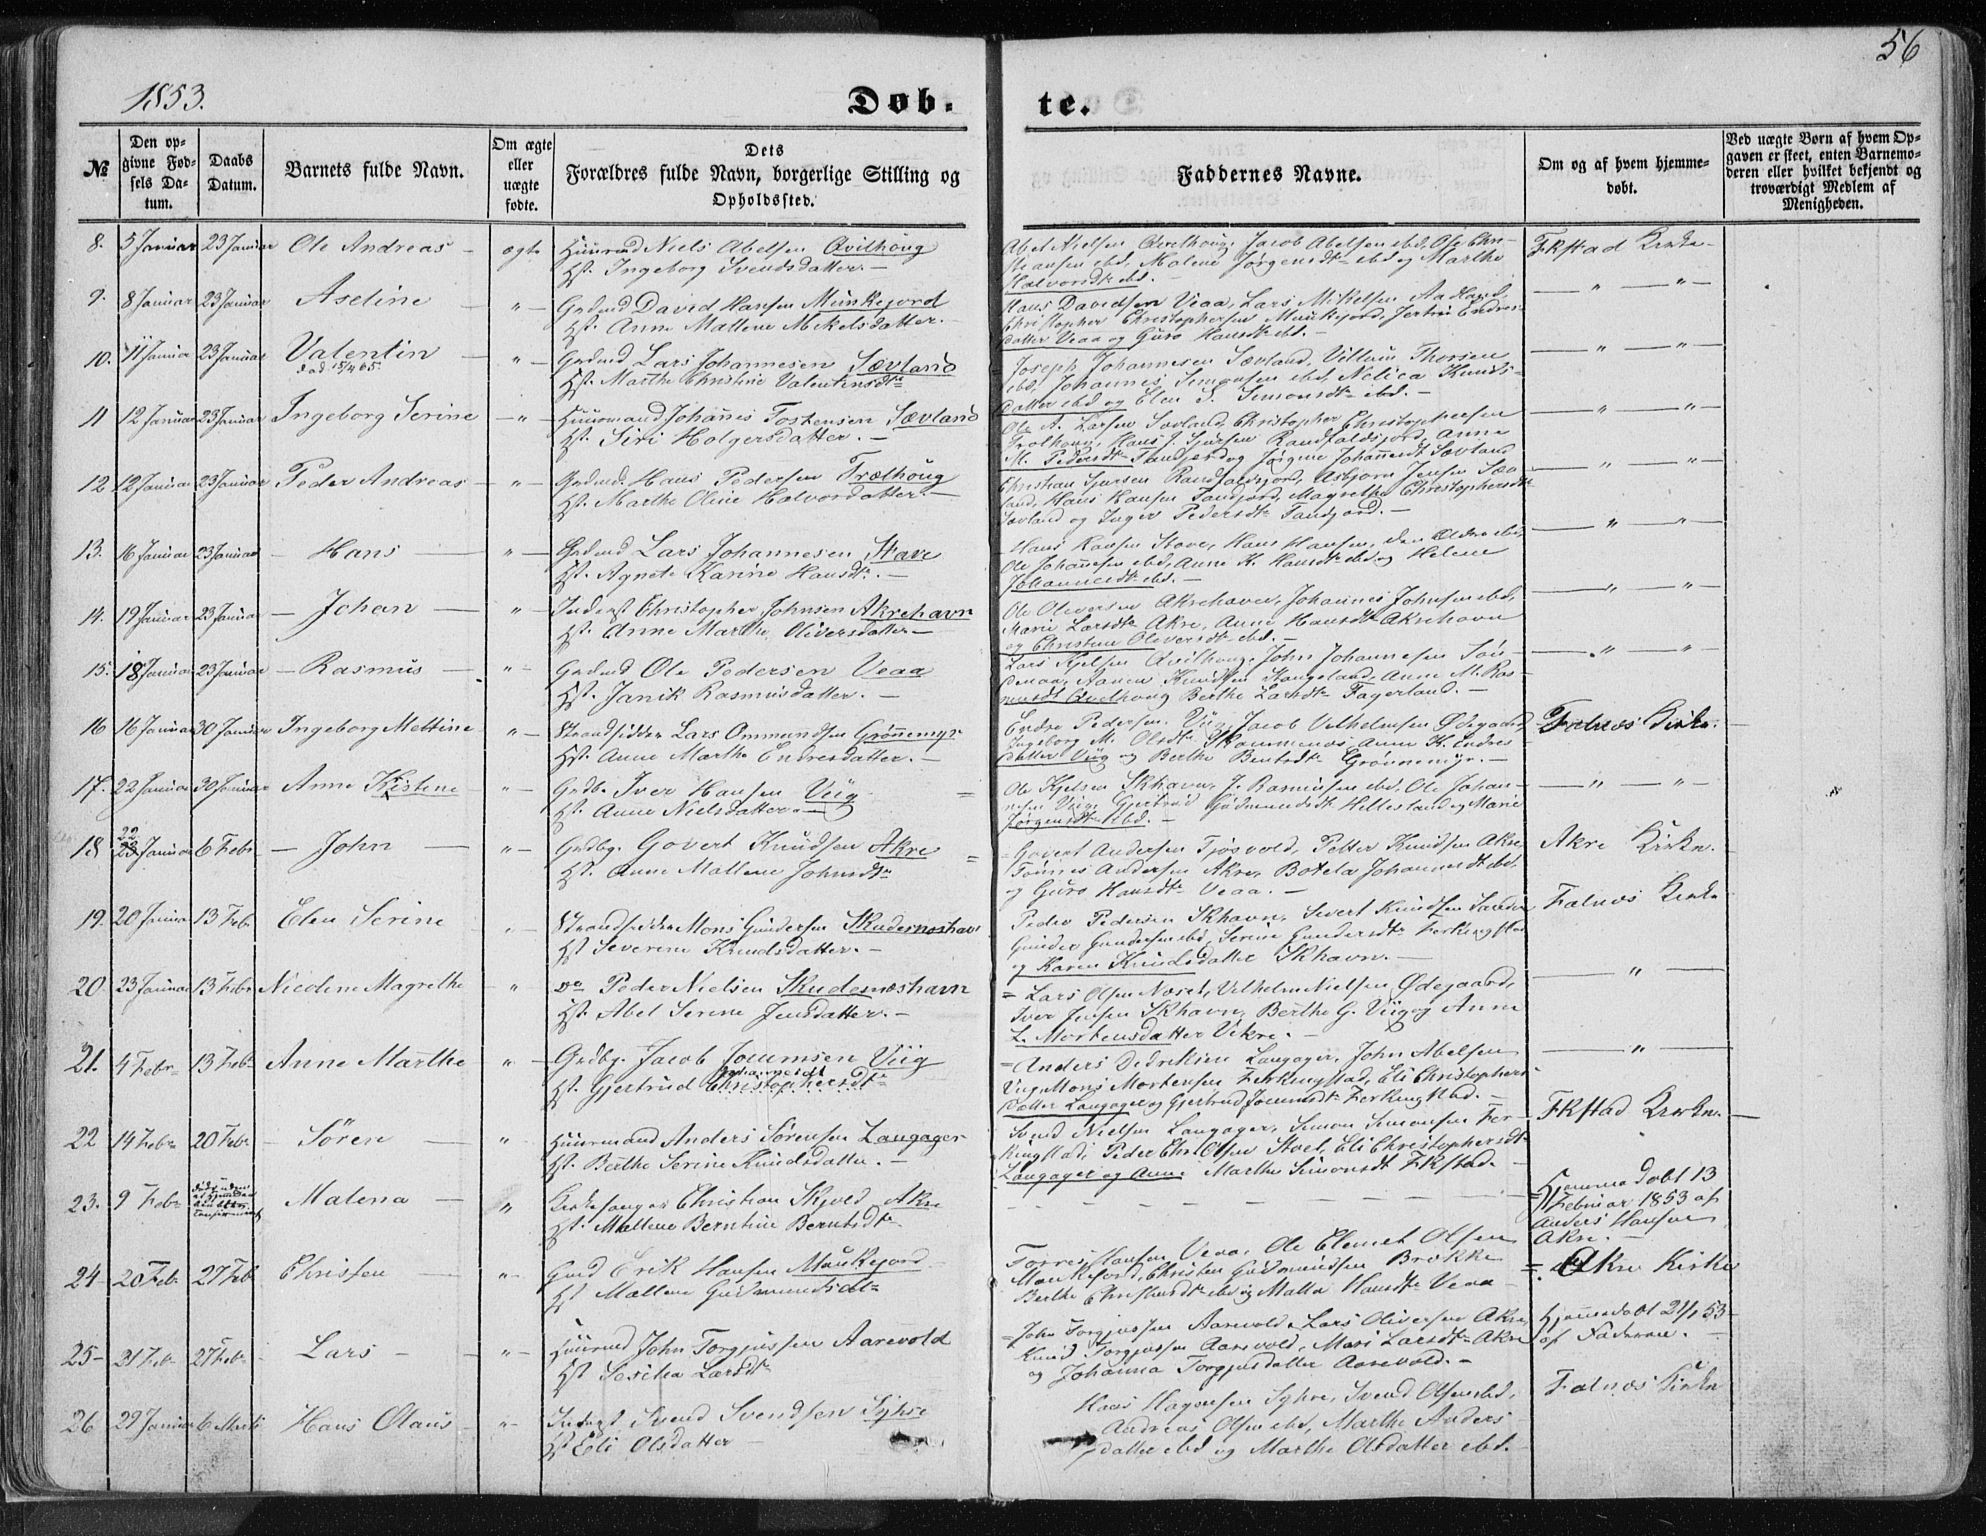 56
1853.
Døb-
te.
№
Den op-
givne Fød-
sels Da-
tum.
Daabs
Datum.
Barnets fulde Navn.
Om ægte
eller
uægte
fødte.
Dets
Forældres fulde Navn, borgerlige Stilling og
Opholdssted.
Faddernes Navne.
Om og af hvem hjemme-
døbt.
Ved uægte Børn af hvem Op-
gaven er skeet, enten Barnemo-
deren eller hvilket bekjendt og
troværdigt Medlem af
Menigheden.
8. 5 Januar 23 Januar Ole Andreas - ægte Huusmd Niels Abelsen Qvilhoug
Hst. Ingeborg Svendsdatter. -
Abel Nielsen Qvilhoug, Jacob Abelsen ibd, Ole Chri-
stiansen ibd, Malene Jørgensdt ibd og Marthe
Halvorsdt ibd. -
Fkstad Kirke -
9. 8 Januar 23 Januar Aseline - " - Grdmd David Hansen Munkejord
Hst. Anne Mallene Mikelsdatter. -
Hans Davidsen Veaa, Lars Mikelsen Aadland,
Christopher Christophersen Munkejord, Jertru Endres-
datter Veaa og Guro Hansdt ibd. -
— " — " —
10. 11 Januar 23 Januar Valentin - " - Grdmd Lars Johannesen Sævland
død 15/4 65.
Hst. Marthe Christine Valentinsdtr
Joseph Johannesen Sævland, Villum Thorsen
ibd, Johannes Simonsen ibd, Knuds-
datter ibd og Elen S. Simonsdt ibd. -
— " — " —
11 12 Januar 23 Januar Ingeborg Serine - " - Huusmand Johannes Tostensen Sævland
Hst. Siri Holgersdatter. -
Ole A. Larsen Sævland, Christopher Christophersen
Trælhoug, Hans J. Sjursen Randfaldsjord, Anne
M. Pedersdt Tandjord og Jørgine Johannesdt Sævland
— " — " —
12 12 Januar 23 Januar Peder Andreas - " - Grdmd. Hans Pedersen Trælhoug
Hst. Marthe Oline Halvordatter. -
Christian Sjursen Randfaldsjord, Asbjørn Jensen Sæv-
land, Hans Hansen Tandjord, Magrethe Christophersdt
Sævland og Inger Pedersdt Tandjord. -
— " — " —
13. 16 Januar 23 Januar - Hans - " - Grdmd Lars Johannesen Stave
Hst. Agnete Karine Hansdt. -
Hans Hansen Stave, Hans Hansen, den Ældre ibd,
Ole Johannesen ibd, Anne K. Hansdt ibd og Helene
Johannesdt ibd. -
— " — " —
14. 19 Januar 23 Januar - Johan - " - Inderst Christopher Johnsen Akrehavn
Hst. Anne Marthe Oliversdatter -
Ole Oliversen Akrehavn, Johannes Johnsen ibd,
Marie Larsdt Akre, Anne Hansdt Akrehavn
og Christine Oliversdt ibd. -
— " — " —
15. 18 Januar 23 Januar - Rasmus - " - Grdmd Ole Pedersen Veaa
Hst. Janik Rasmusdatter. -
Lars Kjelsen Qvilhoug, John Johannesen Søn-
denaa, Aanen Knudsen Haugeland, Anne M. Ras-
musdt Qvilhoug Berthe Larsdt Fagerland. -
— " — " —
16 16 Januar 30 Januar Ingeborg Mettine " - Strandsidder Lars Ommundsen Grønnemyr
Hst. Anne Marthe Endresdatter. -
Endre Pedersen Viig, Jacob Vilhelmsen Ødegaard,
Ingeborg M. Olsdt Anne K. Endres-
datter Viig og Berthe Bentsdt Grønnemyr. -
Falnes Kirke.
17. 22 Januar 30 Januar Anne Kristene - " - Grdbr. Iver Hansen Viig
Hst. Anne Nielsdatter. -
Ole Kjelsen Skhavn, J. Rasmusen ibd, Ole Johan-
nesen Viig, Gjertrud Gudmundsdt Hillesland og Marie
Jørgensdt ibd. -
— " — " —
18 22 23 Januar 6 Febr - John - " - Grdbr. Govert Knudsen Akre
Hst. Anne Mallene Johnsdtr
Govert Andersen Tjøsvold, Petter Knudsen Akre,
Tønnes Andersen Akre, Botela Johannesdt ibd,
og Guro Hansdt Veaa. -
Akre Kirke.
19. 20 Januar 13 Feb Elen Serine Strandsidder Mons Gundersen Skudesneshavn
Hst Severine Knudsdatter. -
Peder Pedersen Skhavn, Sivert Knudsen
Gunder Gundersen ibd, Serine Gundersdt Ferkingstad
og Karen Knudsdatter Skhavn. -
Falnes Kirke
20. 23 Januar 13 Febr Nicoline Magrethe " do Peder Nielsen Skudesneshavn
Hst. Abel Serine Jensdatter. -
Lars Olsen Næset, Vilhelm Nielsen Ødegaard,
Iver Jensen Skhavn, Berthe G. Viig og Anne
L. Mortensdatter Vikre. -
— " —
21. 4 Febr 13 Feb Anne Marthe " - Grdbr. Jacob Joumsen Viig
Johannesdt
Hst. Gjertrud Christophersdt
Anders Didriksen Langager, John Abelsen
Viig, Mons Mortensen Ferkingstad, Eli Christophers-
datter Langager og Gjertrud Joumsdt Ferkingstad. -
— " —
22 14 Febr 20 Febr - Sören - " Huusmand Anders Sørensen Langager
Hst. Berthe Serine Knudsdatter. -
Svend Nielsen Langager, Simon Simonsen Fer-
kingstad, Peder Chr Olsen Stol, Eli Christophersdt
Langager og Anne Marthe Simonsdt Fkstad.
Fkstad Kirke. -
23. 9 Febr
Malena - " Kirkesanger Christian Skjold Akre
Hst. Mallene Berntine Berntsdt
Hjemmedøbt 13
Februar 1853 af
Anders Hansen
Akre. -
24 20 Feb. 27 Feb Christen - " - Grmd Erik Hansen Munkejord
Hst Mallene Gudmundsdt
Torres Hansen Veaa, Ole Clemet Olsen
Munkejord, Christen Gudmundsen Brekke
Berthe Christensdt ibd og Malla Hansdt Veaa
Akre Kirke
25 - 21 Feb 27 Feb - Lars - " - Huusmd John Torgjussen Aarevold
Hst Sesilia Larsdt
John Torgjussen Aarevold, Lars Oliversen Akre,
Knud Torgjussen Aarevold, Mari Larsdt Akre
og Johanna Torgjusdatter Aarevold. -
Hjemmedøbt 21/2 53
af Faderen. -
26 29 Januar 6 Marts Hans Olaus " Inderst Svend Svendsen Syhre
Hst Eli Olsdatter -
Hans Hagensen Syhre, Svend Olsen ibd,
Andreas Olsen ibd, Marthe Anders-
datter ibd og Marthe Olsdatter ibd.
Falnes Kirke